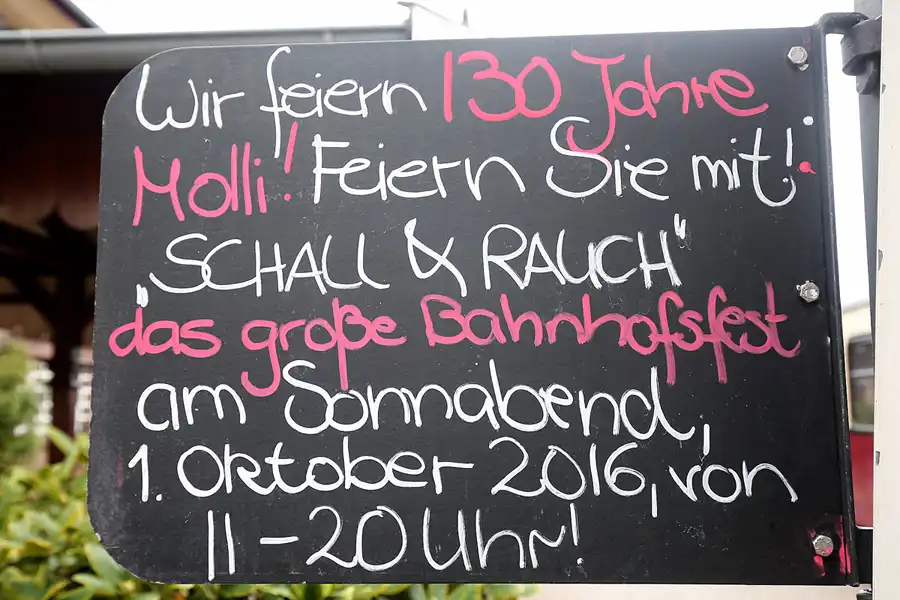 Wir feiern 130 Jahre
Molli! Feiern Sie mit!
„SCHALL & RAUCH"
das große Bahnhofsfest
am Sonnabend,
1. Oktober 2016, von
11-20 Uhr!